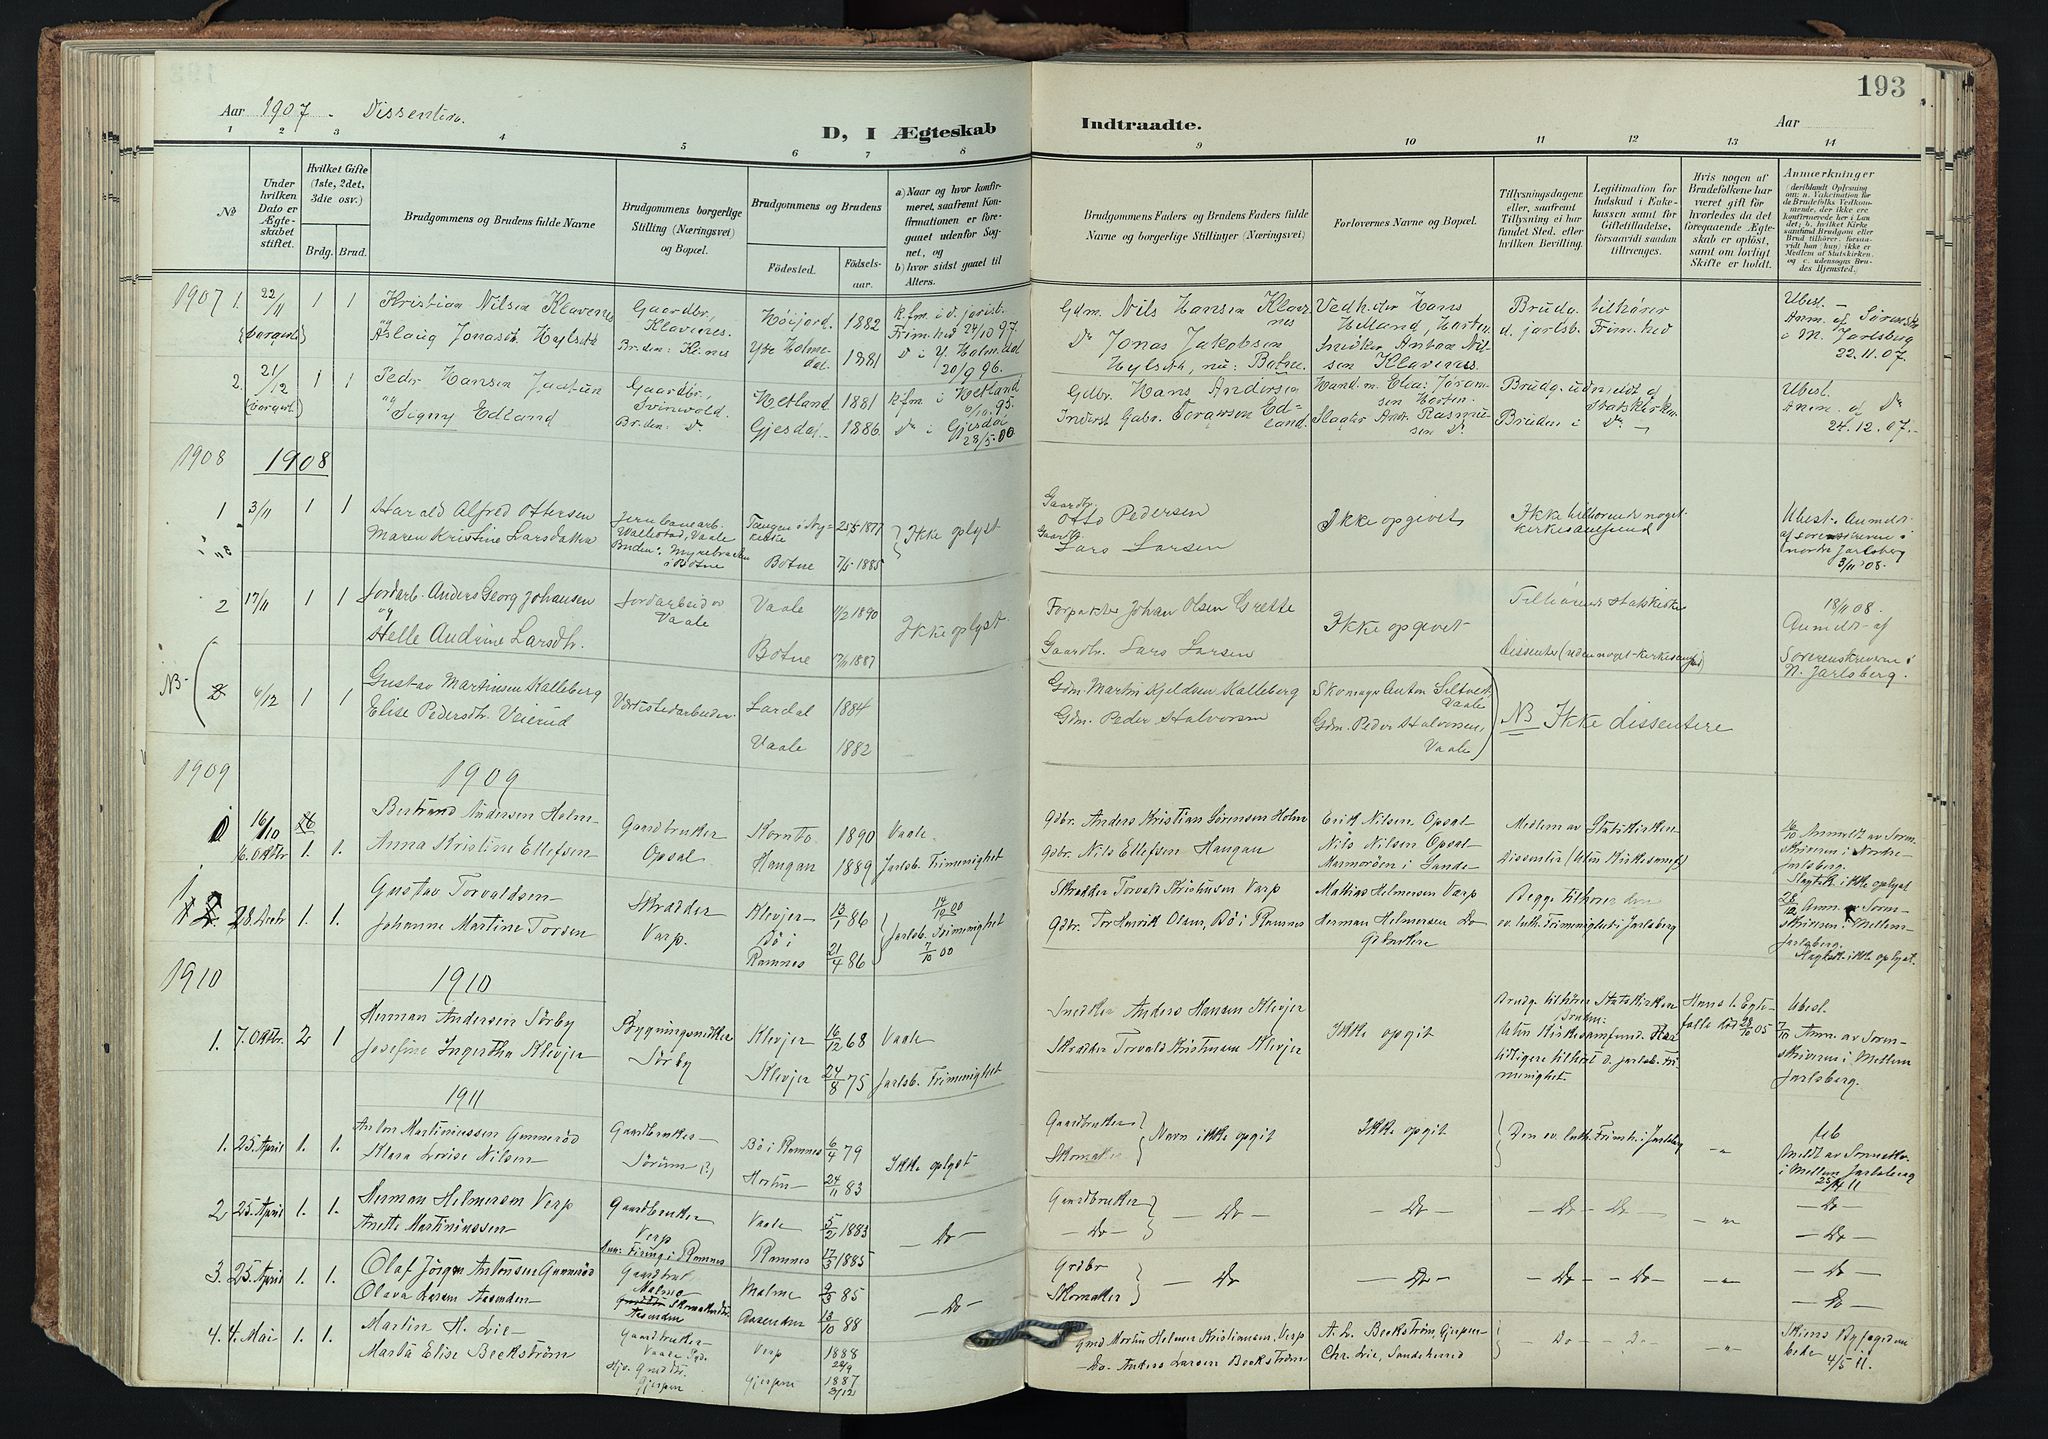 193
Aar 1907. Dissentere.
D, I Ægteskab
Indtraadte.
Aar
1 2 3 4 5 6 7 8 9 10 11 12 13 14
No
Under hvilken Dato er Ægteskabet stiftet.
Hvilket Gifte (1ste, 2det, 3die osv.)
Brdg. Brud.
Brudgommens og Brudens fulde Navne
Brudgommens borgerlige Stilling (Næringsvei) og Bopæl.
Brudgommens og Brudens
Fødested.
Fødselsaar.
a) Naar og hvor konfirmeret, saafremt Konfirmationen er foregaaet udenfor Sognet, og
b) hvor sidst gaaet til Alters.
Brudgommens Faders og Brudens Faders fulde Navne og borgerlige Stillinger (Næringsvei)
Forlovernes Navne og Bopæl.
Tillysningsdagene eller, saafremt Tillysning ei har fundet Sted, efter hvilken Bevilling.
Legitimation for Indskud i Enkekassen samt for Giftetilladelse, forsaavidt saadan tiltrænges.
Hvis nogen af Brudefolkene har været gift før hvorledes da det foregaaende Ægteskab er opløst, samt om lovligt Skifte er holdt.
Anmærkninger
1907 1. 22/11 1 1 Kristian Nilsen Klavenes Gaardbr., Klavenes. Høijord. 1882 k.fm. i d. jarlsb. Frim.hed 24/10 97. Gdm. Nils Hansen Klavenes
(borgerl.) Aslaug Jonasdt. Hylseth Bruden: Kjnes Ytre Holmedal. 1881 Do i Y. Holmedal 20/9 96. Do Jonas Jakobsen Hylseth, nu: Botne.
Brudg. tilhører d. jarlsb. Frim.hed
Ubest. Anm. af Sørenskr. i M. Jarlsberg 22.11.07.
2. 21/12 1 1 Peder Hansen Jaatun Gaardbr., 1881 k.fm. i Hetland Gdbr. Hans Andersen
(borgerl.) Signy Edland Bruden: Do Gjesdal 1886. Do i Gjesdal 28/5.00
Brudg. udmeldt af Statskirken
Bruden i Do
Ubest. Anm. af Do 24.12.07.
1908 1908
1 3/11 1 1 Harald Alfred Ottersen Jernbanearb. Vallestad, Vaale Tangen i Nykirke 25/5 1877 Ikke oplyst Gaardbr. Otto Pedersen Ikke opgivet Ikke tilhørende noget kirkesamfund
Maren Kristine Larsdatter Bruden: Myrebrakken i Botne Botne 7/5 1885 Gaardbr. Lars Larsen
Ubest. Anmeldt af sorenskriveren i nordre Jarlsberg 3/11 08.
2 17/11 1 1 Jordarb. Anders Georg Johansen Jordarbeider Vaale Vaale 11/2 1890 Ikke oplyst. Forpagter Johan Olsen Grette Ikke opgivet Tilhørende Statskirken
og Helle Andrine Larsdtr. Botne 17/11 1887 Gaardbr. Lars Larsen Dissenter (uden noget kirkesamfund)
18/11 08. Anmeldt af Sorenskriveren i N. Jarlsberg.
NB 2 6/12 1 1 Gustav Martinsen Kalleberg Værkstedarbeider Lardal 1884 Gdm. Martin Kjeldsen Kalleberg Skomager Anton Siltvedt Vaale
Elise Pedersdtr. Veierud Vaale 1882 Gdm. Peder Halvorsen Gdm. Peder Halvorsen, Vaale
NB Ikke dissentere
1909 1909
16/10 Bertrand Andersen Holm Gaardbruker Kornto 1890 Vaale. Gdbr. Anders Kristian Sørensen Holm Erik Nilsen Opsal Medlem av Statskirken
16. Oktbr 1. 1. Anna Kristine Ellefsen Opsal Haugan 1889 Jarlsb. Frimenighet Gdbr. Nils Ellefsen Haugan Nils Nilsen Opsal Marmorøen i Sande Dissenter (Uten Kirkesamf.)
16/10 Anmeldt av Sorenskriveren i Nordre Jarlsberg. Slegtsk. ikke oplyst
28. Decbr 1. 1. Gustav Torvaldsen Skrædder Varp. Klevjer 13/1 86 14/10 00 Skrædder Torvald Kristiansen Varp Mathias Helmersen Varp Begge tilhører den
Johanne Martine Torsen Bø i Ramnes 21/4 86 Jarlsb. Frimenighet 7/10 00 Gdbr. Tor Henrik Olsen, Bø i Ramnes Herman Helmersen Do Gdbrukere ev. luth. Frimenighet i Jarlsberg
28/12 Anm. av Sorenskriveren i Mellem Jarlsberg. Slegtsk. ikke oplyst.
1910 1910
1. 7. Oktbr. 2 1 Herman Andersen Sørby Bygningssnekker Sørby Klevjer 16/12 68 Vaale Snedker Anders Hansen Klevjer Ikke opgit Brudg. tilhører Statskirken
Josefine Ingertha Klevjer Klevjer 24/8 75 Jarlsb. Frimenighet Skrædder Torvald Kristiansen Klevjer Bruden: Uten Kirkesamfund. Har tidligere tilhørt d. jarlsb. Frimenighet.
Hans 1. Egtefælle død 28/10 05
Ubesl. 7/10 Anm. av Sorenskriveren i Mellem Jarlsberg.
1911
1. 25. April 1. 1. Anton Martiniussen Gunnerød Gaardbruker Sørum (?) Bø i Ramnes 6/4 79 Ikke oplyst Gaardbruker Navn ikke opgit Ikke opgit Den ev. luth. Frimh. i Jarlsberg
Klara Lovise Nilsen Horten 24/11 83 Skomaker
Meldt av Sorenskr. i Mellem Jarlsberg 25/4 11
2 25. April 1. 1. Herman Helmersen Verp Gaardbruker Verp Vaale 5/2 1883 — Do — Gaardbruker — Do — — Do — — Do — — Do — — " — — Do —
Anette Martiniussen Ramnes 17/3 1885 — Do — — Do —
3. 25. April 1. 1. Olaf Jørgen Antonsen Gunnerød Gaardbruk. Malmø Malme 9/3 85 — Do — Grdbr — Do — — Do — — Do — — Do — — " — — Do —
Olava Larsen Aasenden Aasenden 13/10 88 Skomaker — Do —
4. 4. Mai 1. 1. Martin H. Lie Gaardbruker Verp 1888 Grd Martin Helmer Kristiansen, Verp A. L. Beckstrøm, Gjerpen — Do — — Do — — " — Skiens Byfogedembede 4/5 11.
Marta Elise Beckstrøm Gjerpen Gjerpen 1887 — Do. Anders Larsen Beckstrøm Chr. Lie, Sandeherred